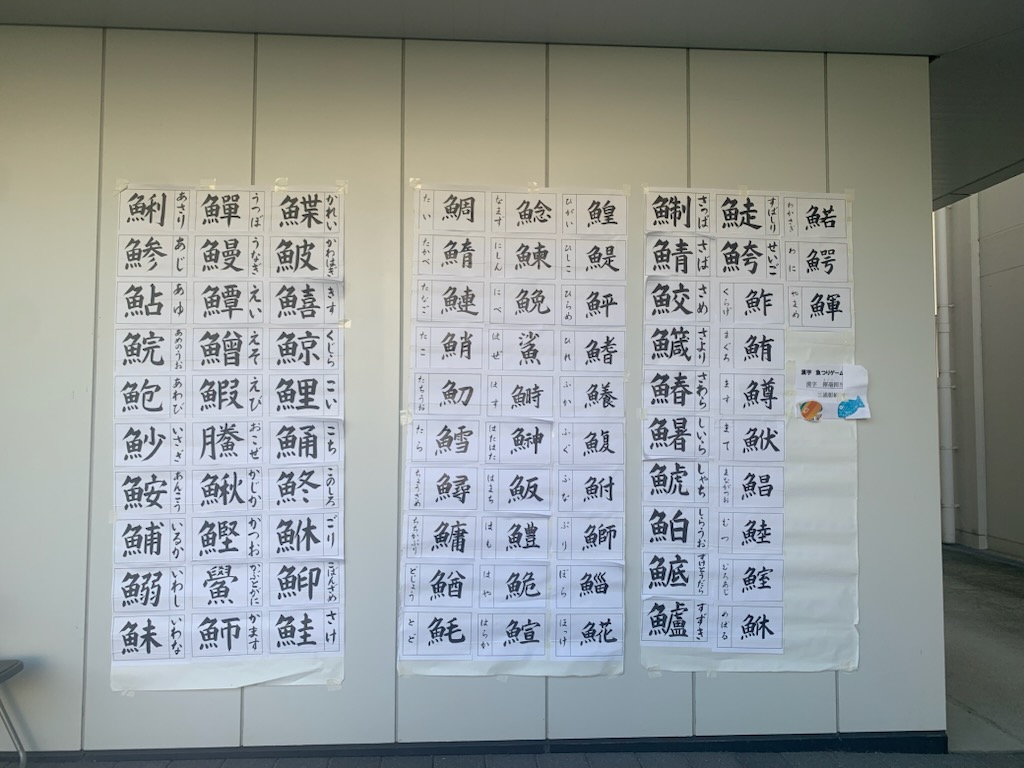 鯏 あさり
鱓 うつぼ
鰈 かれい
鯵 あじ
鰻 うなぎ
鮍 かわはぎ
鮎 あゆ
鱏 えい
鱚 きす
鯇 あめのうお
鱛 えそ
鯨 くじら
鮑 あわび
鰕 えび
鯉 こい
魦 いさざ
鰧 おこぜ
鯒 こち
鮟 あんこう
鰍 かじか
鮗 このしろ
鯆 いるか
鰹 かつお
鮴 ごり
鰯 いわし
鱟 かぶとがに
鮣 こばんざめ
鮇 いわな
魳 かます
鮭 さけ
鯛 たい
鯰 なまず
鰉 ひがい
鰖 たかべ
鰊 にしん
鯷 ひしこ
鰱 たなご
鮸 にべ
鮃 ひらめ
鮹 たこ
鯊 はぜ
鰭 ひれ
魛 たちうお
鰣 はす
鱶 ふか
鱈 たら
鰰 はたはた
鰒 ふぐ
鱘 ちょうざめ
魬 はまち
鮒 ふな
鱅 ちちかぶり
鱧 はも
鰤 ぶり
鰌 どじょう
鮠 はや
鯔 ぼら
魹 とど
鰚 はらか
𩸽 ほっけ
鯯 さっぱ
鯐 すばしり
鰙 わかさぎ
鯖 さば
鮬 せいご
鰐 わに
鮫 さめ
鮓 くらげ
鯶 やまめ
鱵 さより
鮪 まぐろ
鰆 さわら
鱒 ます
鱰 しいら
鮲 まて
鯱 しゃち
鯧 まながつお
鮊 しらうお
鯥 むつ
鯳 すけとうだら
鰘 むろあじ
鱸 すずき
鮴 めばる
漢字 魚つりゲーム